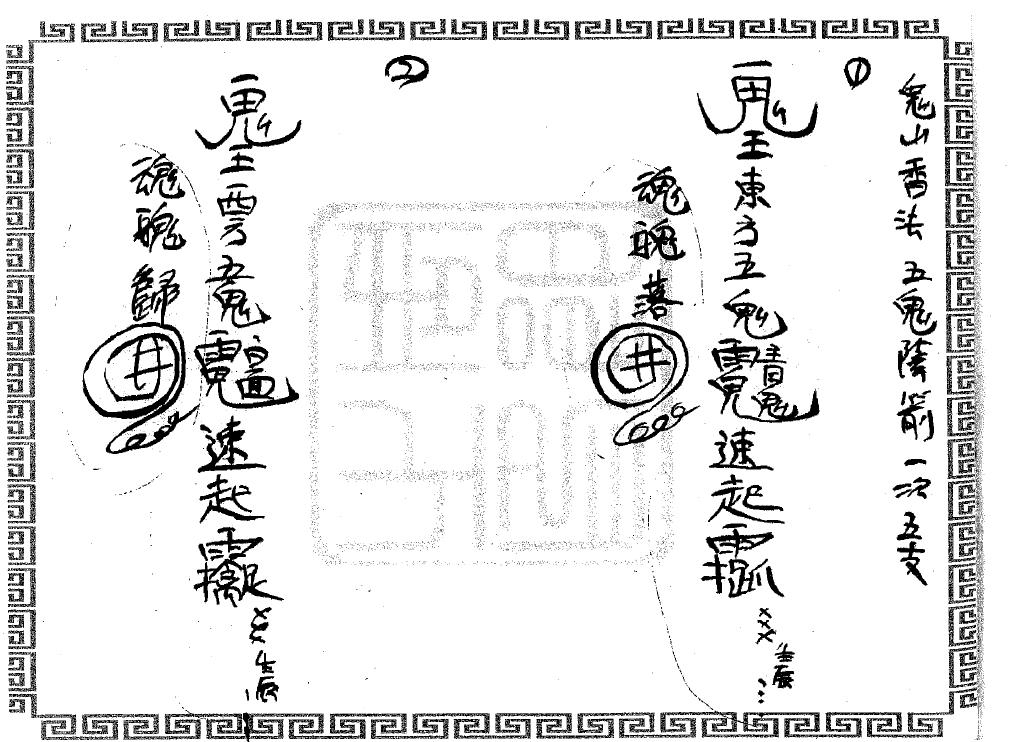 鬼山香法 五鬼陰箭 一次五支
①
鬼王東方五鬼 青鬼 速起
×××生辰…
魂魄落井
②
鬼王雲方五鬼 速起
×××生辰
魂魄歸井